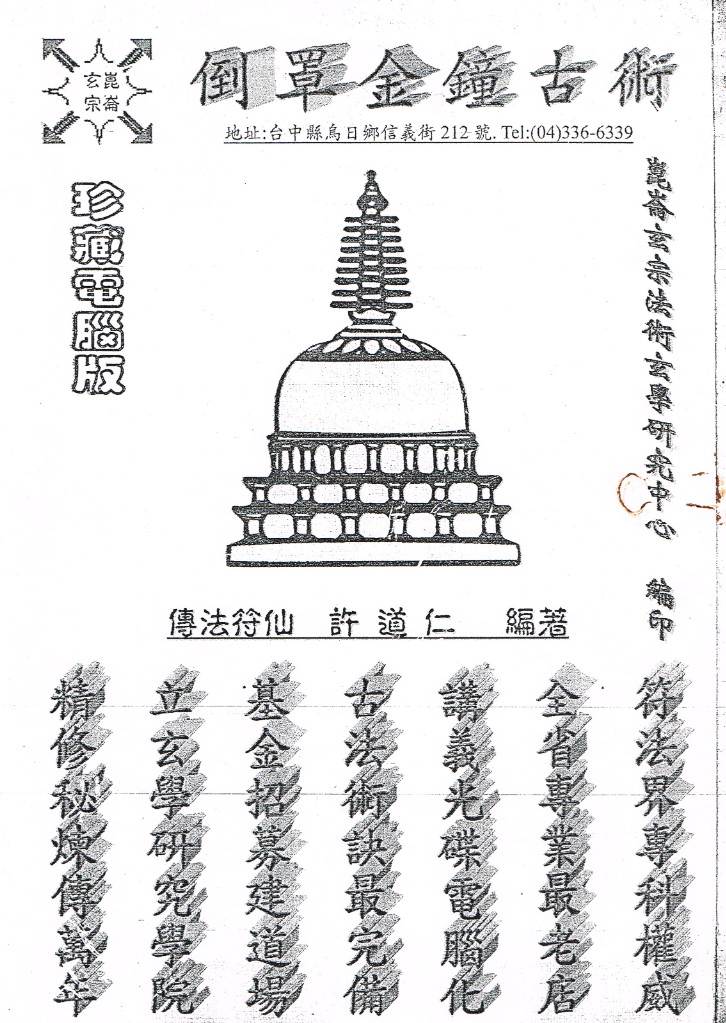 崑崙
玄宗
倒罩金鐘古術
地址:台中縣烏日鄉信義街 212 號. Tel:(04)336-6339
崑崙玄宗法術玄學研究中心 編印
珍藏電腦版
傳法符仙 許道仁 編著
符法界專科權威
全省專業最老店
講義光碟電腦化
古法術訣最完備
基金招募建道場
立玄學研究學院
精修秘煉傳萬年